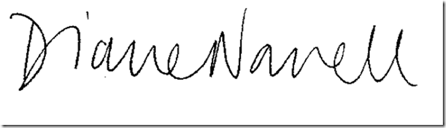 Diane Navell